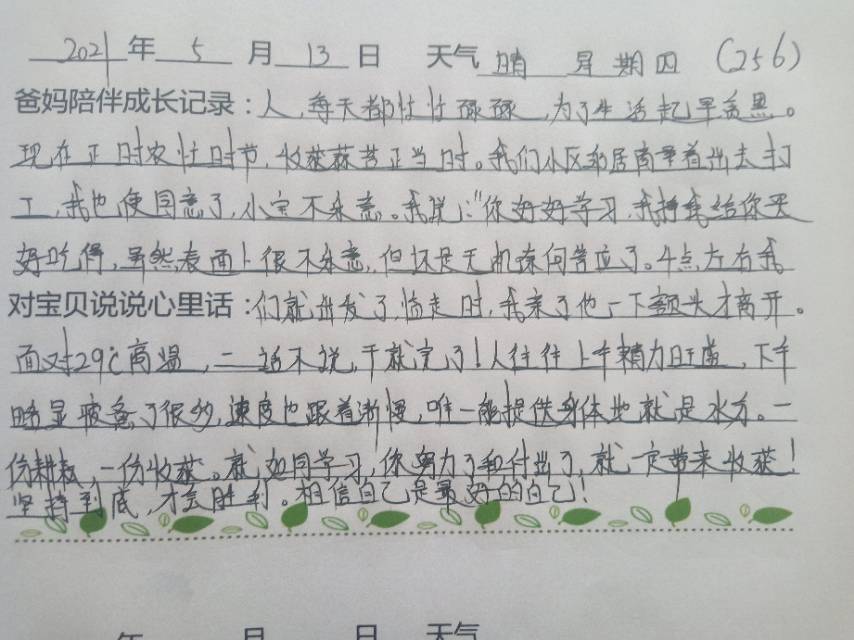 2021年 5 月 13 日 天气 晴 星期四 (256)
爸妈陪伴成长记录：人，每天都忙忙碌碌，为了生活起早贪黑。
现在正时农忙时节，收获蒜苔正当时。我们小区邻居商量着出去打
工，我也便同意了，小宝不乐意。我说："你好好学习，我挣钱给你买
好吃得，虽然表面上很不乐意，但还是无可奈何答应了。4点左右我
对宝贝说说心里话：们就出发了，临走时，我亲了他一下额头才离开。
面对29℃高温，二话不说，干就完了！人往往上午精力旺盛，下午
略显疲惫了很多，速度也跟着渐慢，唯一能提供身体地就是水分。一
份耕耘，一份收获。就如同学习，你努力了和付出了，就一定带来收获！
坚持到底，才会胜利。相信自己是最好的自己！
年 月 日 天气